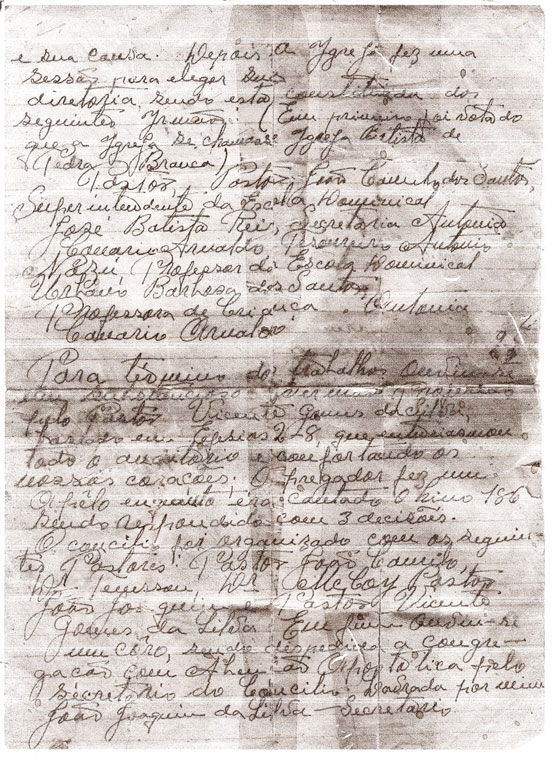 e sua causa. Depois a Ygreja fez uma
sessão para eleger sua
diretoria, sendo esta constituida dos
seguintes Yrmãos: (Em primeiro foi votado
que a Ygreja se chamasse Ygreja Batista de
Pedra Branca)
Pastor, Pastor João Camilo dos Santos,
Superintendente da Escola Dominical
José Batista Reis, Secretaria Antonia
Canario Arnaldo, Tezoureiro Antonio
Professor da Escola Dominical
Urbano Barbosa dos Santos,
Professora de Criança Antonia
Canario Arnaldo
Para término dos trabalhos ouvimos
um
pelo Pastor Vicente Gomes da Silva,
baseado em Efesios 2-8, que entusiasmou
todo o auditório e confortando os
nossos corações; O pregador fez um
apêlo enquanto era cantado o hino 186
sendo respondido com 3 decisões.
O concilio foi organizado com os seguin-
tes Pastores: Pastor João Camilo,
Dr. Dr. McCoy Pastor
João Joaquim e Pastor Vicente
Gomes da Silva Em fim ouviu-se
um côro, sendo despedida a congre-
gacão com a Benção Apostólica pelo
secretario do Concilio. Lavrada por mim
João Joaquim da Silva - Secretario